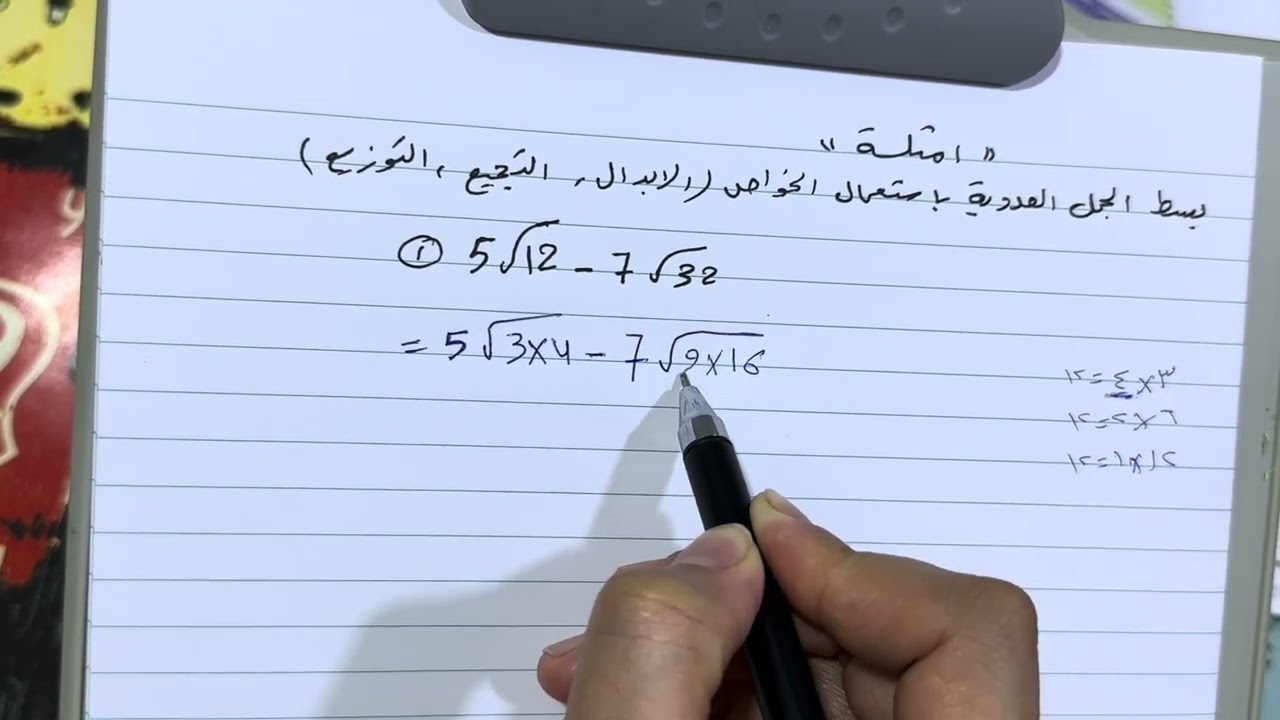 « امثلة »
بسط الجمل العددية باستعمال الخواص (الابدال، التجميع، التوزيع)
① 5√12 - 7√32
= 5√3×4 - 7√2×16
١٢=٤×٣
١٢=٢×٦
١٢=١×١٢